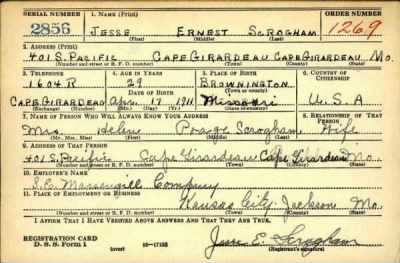 SERIAL NUMBER 1. NAME (Print) ORDER NUMBER
2856 JESSE ERNEST SCROGHAM 1269
(First) (Middle) (Last)
2. ADDRESS (Print)
401 S. PACIFIC CAPE GIRARDEAU CAPE GIRARDEAU MO.
(Number and street or R. F. D. number) (Town) (County) (State)
3. TELEPHONE 4. AGE IN YEARS 5. PLACE OF BIRTH 6. COUNTRY OF CITIZENSHIP
1604 R 29 BROWNINGTON
DATE OF BIRTH (Town or county)
CAPE GIRARDEAU Apr. 17 1911 Missouri U.S.A
(Exchange) (Number) (Mo.) (Day) (Yr.) (State or country)
7. NAME OF PERSON WHO WILL ALWAYS KNOW YOUR ADDRESS 8. RELATIONSHIP OF THAT PERSON
Mrs. Helen Paige Scrogham Wife
(Mr., Mrs., Miss) (First) (Middle) (Last)
9. ADDRESS OF THAT PERSON
401 S. Pacific Cape Girardeau Cape Girardeau Mo.
(Number and street or R. F. D. number) (Town) (County) (State)
10. EMPLOYER'S NAME
S.E. Massengill Company
11. PLACE OF EMPLOYMENT OR BUSINESS
Kansas City Jackson Mo.
(Number and street or R. F. D. number) (Town) (County) (State)
I AFFIRM THAT I HAVE VERIFIED ABOVE ANSWERS AND THAT THEY ARE TRUE.
REGISTRATION CARD
D. S. S. Form 1 (over) 16-17105 Jesse E. Scrogham
(Registrant's signature)